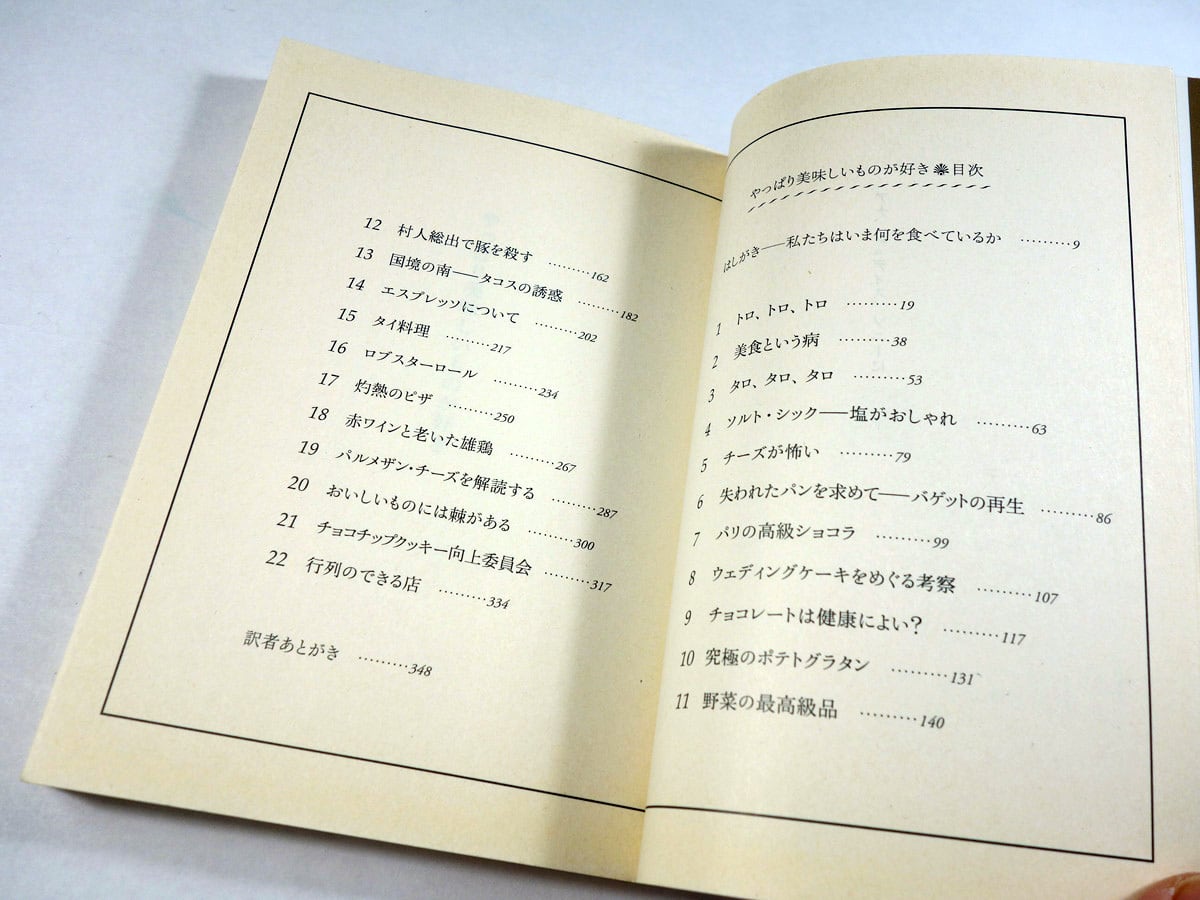 やっぱり美味しいものが好き❋目次
はしがき──私たちはいま何を食べているか ………9
1 トロ、トロ、トロ ………19
2 美食という病 ………38
3 タロ、タロ、タロ ………53
4 ソルト・シック──塩がおしゃれ ………63
5 チーズが怖い ………79
6 失われたパンを求めて──バゲットの再生 ………86
7 パリの高級ショコラ ………99
8 ウェディングケーキをめぐる考察 ………107
9 チョコレートは健康によい? ………117
10 究極のポテトグラタン ………131
11 野菜の最高級品 ………140
12 村人総出で豚を殺す ………162
13 国境の南──タコスの誘惑 ………182
14 エスプレッソについて ………202
15 タイ料理 ………217
16 ロブスターロール ………234
17 灼熱のピザ ………250
18 赤ワインと老いた雄鶏 ………267
19 パルメザン・チーズを解読する ………287
20 おいしいものには棘がある ………300
21 チョコチップクッキー向上委員会 ………317
22 行列のできる店 ………334
訳者あとがき ………348